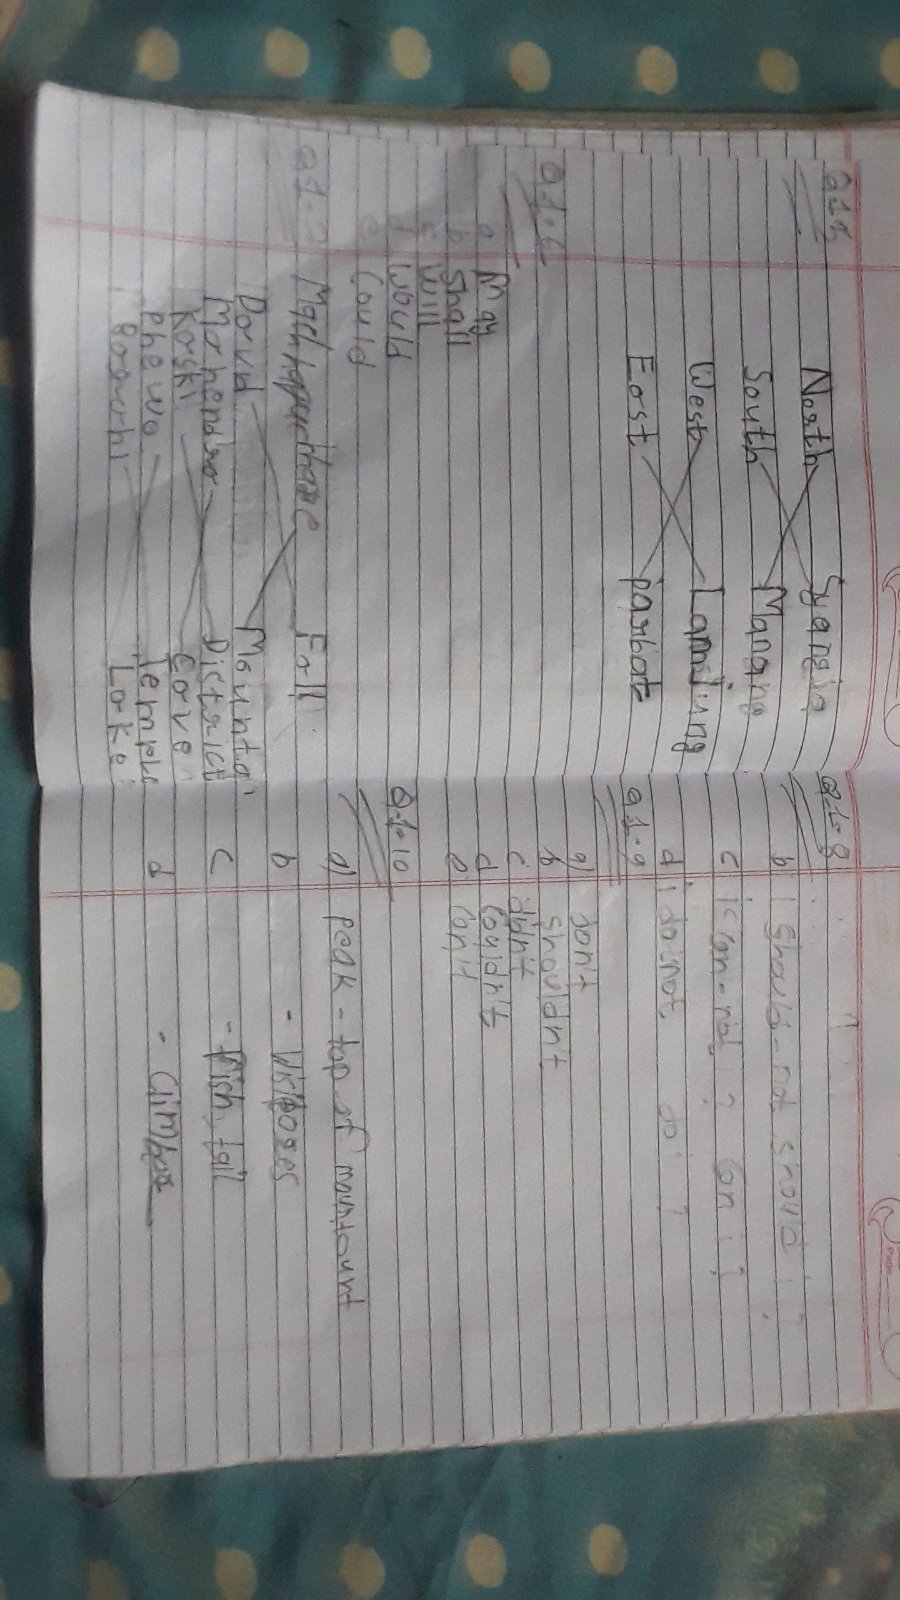 Q1.5
North Syangja
South Manang
West Lamjung
East parbat
Q1.6
a May
b Shall
c Will
d Would
e Could
Q1.7 Machhapuchhare Fall
David Mountai
Mahendra District
Kaski Cave
phewa Temple
Lake
Q1.8
b I should-not should i ?
c I can-not ? Can i ?
d I do not do i ?
Q1.9
a) don't
b shouldn't
c didn't
d Couldn't
e Can't
Q1.10
a) peak - top of mauntaunt
b
c - Fish tail
d